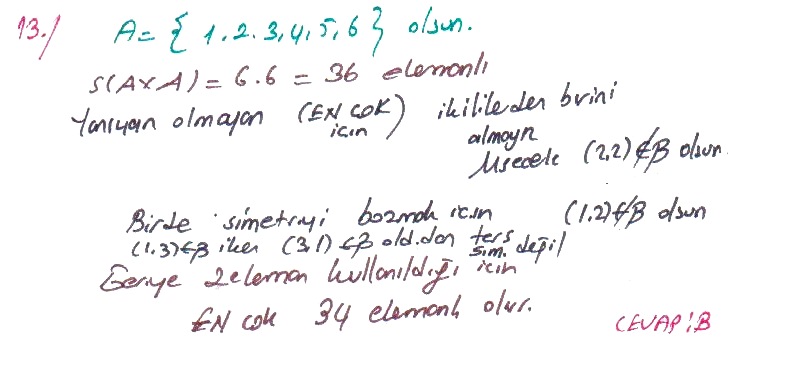 13./ A= { 1,2,3,4,5,6 } olsun.
S(AxA) = 6.6 = 36 elemanlı
Yansıyan olmayan (EN ÇOK için) ikililerden birini
almayın
Meselâ (2,2)∉β olsun
Birde simetriyi bozmak için (1,2)∉β olsun
(1,3)∈β iken (3,1)∈β old.dan ters sim. değil
Geriye 2 eleman kullanıldığı için
EN çok 34 elemanlı olur.
CEVAP:B